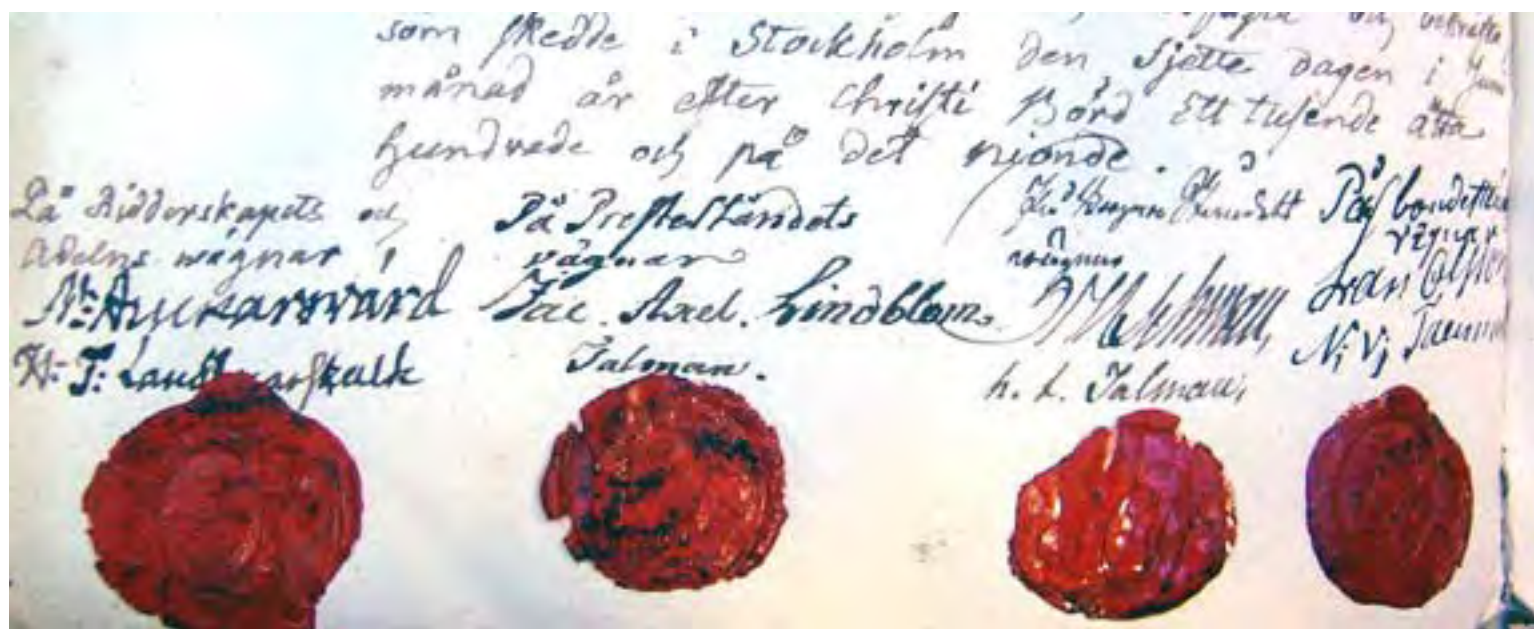 och
som skedde i Stockholm den Sjette dagen i Juni
månad år efter Christi Börd Ett tusende åtta
hundrade och på det nionde.
På Ridderskapets och
Adelns wägnar
M: Anckarsvärd
H: T: Landtmarskalk
På Prestestândets
vägnar
Jac. Axel. Lindblom.
Talman.
På Borgare Ståndets
wägnar
h. t. Talman,
På bondestån
vägnar
Lars Olsson